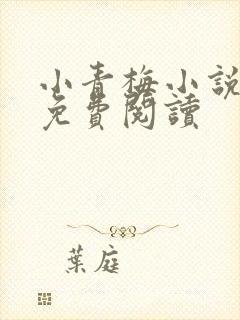 小青梅小說
免費閱讀
葉庭